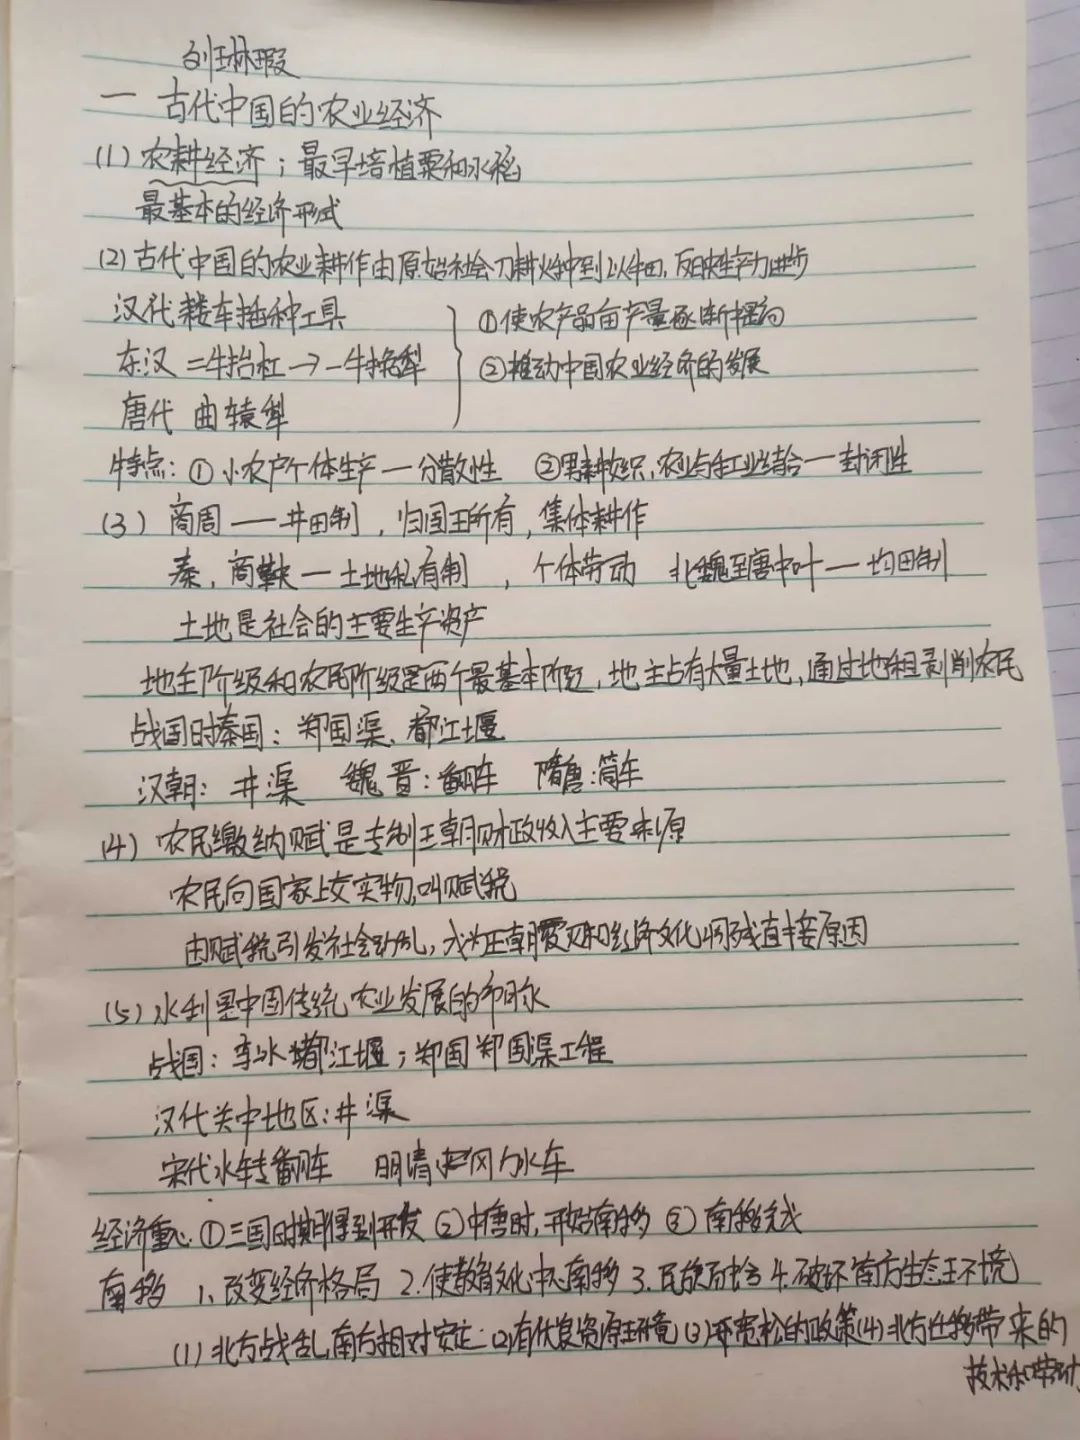 刘琳瑕
一 古代中国的农业经济
(1) 农耕经济；最早培植粟和水稻
最基本的经济形式
(2) 古代中国的农业耕作由原始社会刀耕火种到以牛田，反映生产力进步
汉代 耧车播种工具
东汉 二牛抬杠→一牛挽犁
唐代 曲辕犁
①使农产品亩产量逐渐提高
②推动中国农业经济的发展
特点：①小农户个体生产—分散性 ②男耕女织，农业与手工业结合—封闭性
(3) 商周——井田制，归国王所有，集体耕作
秦，商鞅—土地私有制，个体劳动 北魏至唐中叶—均田制
土地是社会的主要生产资产
地主阶级和农民阶级是两个最基本阶级，地主占有大量土地，通过地租剥削农民
战国时秦国：郑国渠、都江堰
汉朝：井渠 魏晋：翻车 隋唐：筒车
(4) 农民缴纳赋是专制王朝财政收入主要来源
农民向国家上交实物，叫赋税
因赋税引发社会动乱，成为王朝覆灭和经济文化凋残直接原因
(5) 水利是中国传统农业发展的命脉
战国：李冰 都江堰；郑国 郑国渠工程
汉代关中地区：井渠
宋代水转翻车 明清 风力水车
经济重心 ①三国时期得到开发 ②中唐时，开始南移 ③南移完成
南移 1、改变经济格局 2.使教育文化中心南移 3.民族融合 4.破坏南方生态环境
(1) 北方战乱，南方相对安定 (2)有优良资源环境 (3)开宽松的政策 (4)北方迁移带来的
技术和